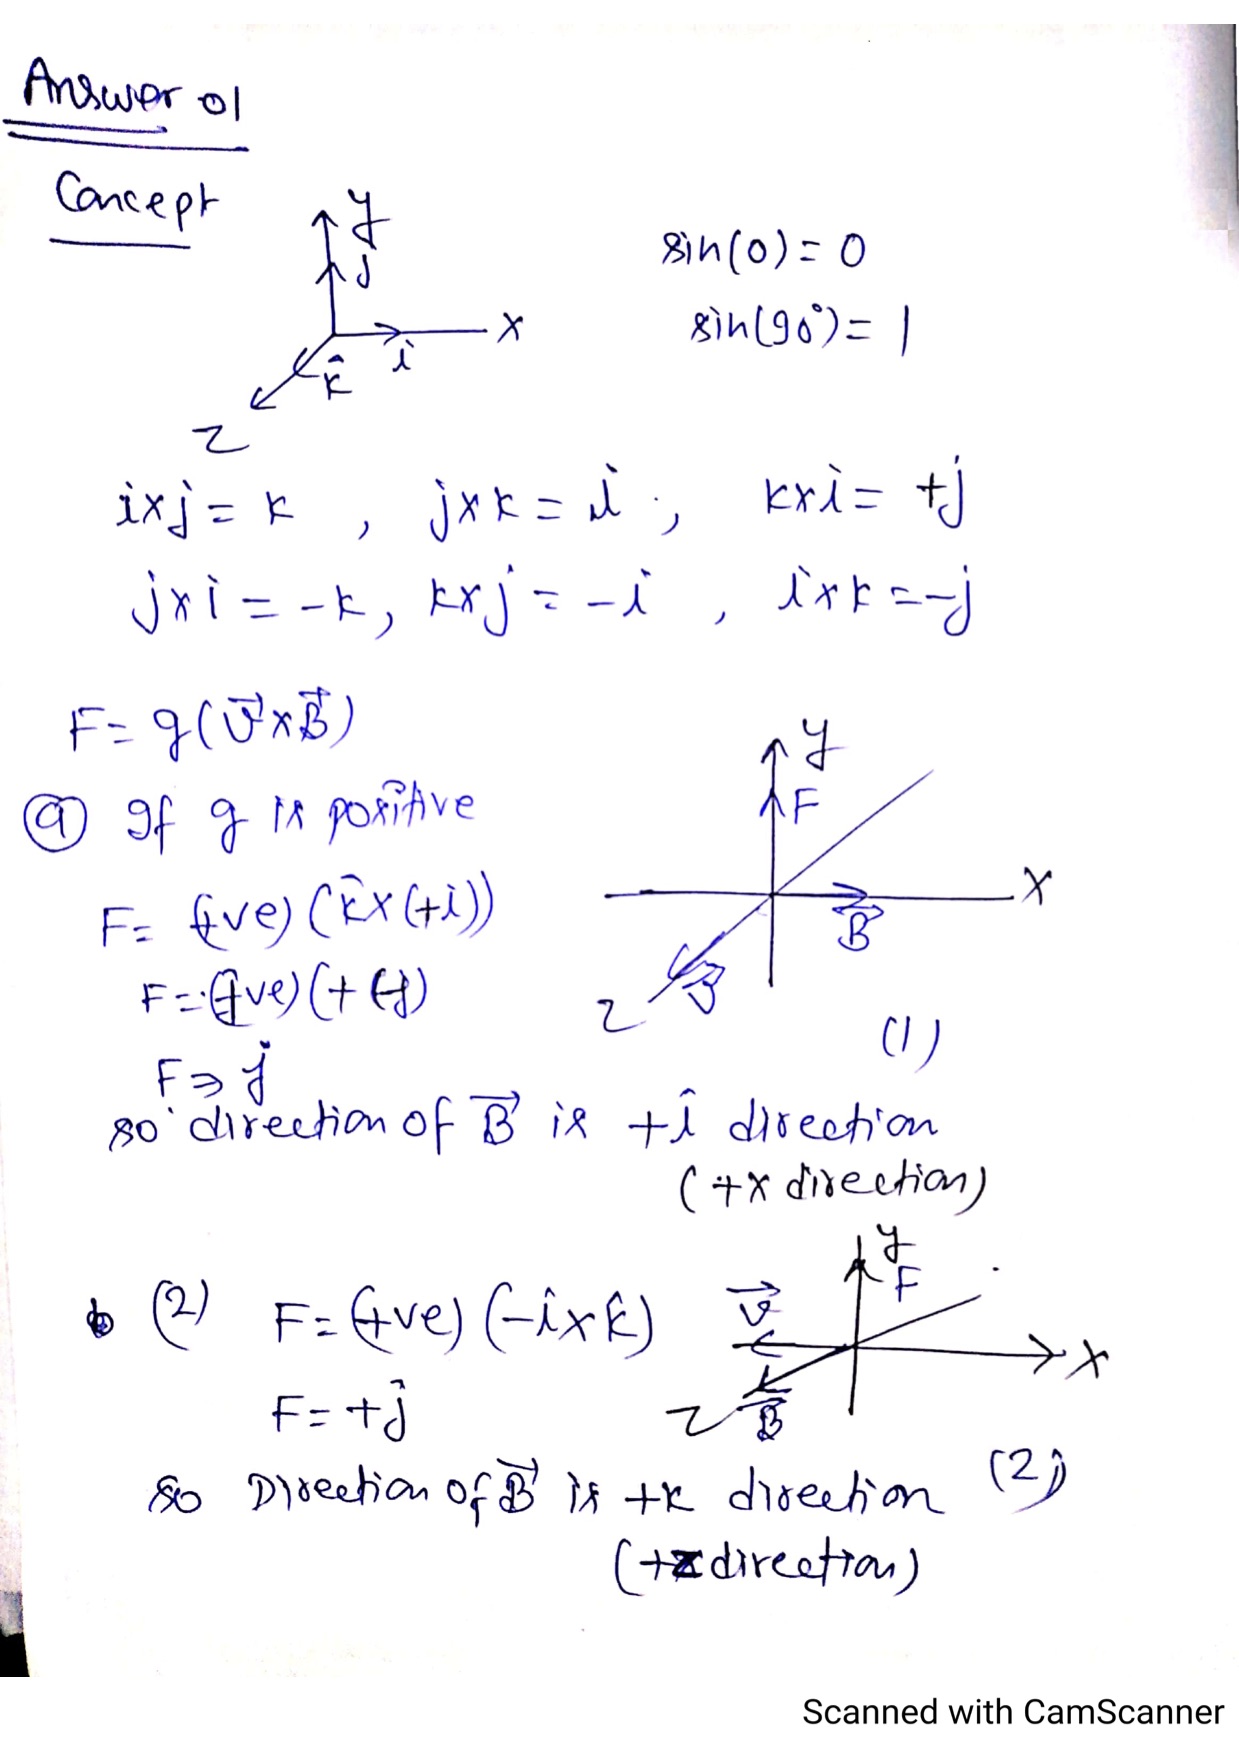 Answer 01
Concept
y
j
x
i
k̂
z
sin(0) = 0
sin(90°) = 1
i×j = k , j×k = i , k×i = +j
j×i = -k, k×j = -i , i×k = -j
F = q(v⃗×B⃗)
(a) If q is positive
F = (+ve) (k̂×(+i))
F = (+ve) (+j)
F ⇒ j
y
F
x
B⃗
v⃗
z
(1)
so direction of B⃗ is +î direction
(+x direction)
b (2) F = (+ve) (-î×k̂)
F = +ĵ
y
F
v⃗
x
z
B⃗
(2)
so Direction of B⃗ is +k direction
(+z direction)
Scanned with CamScanner